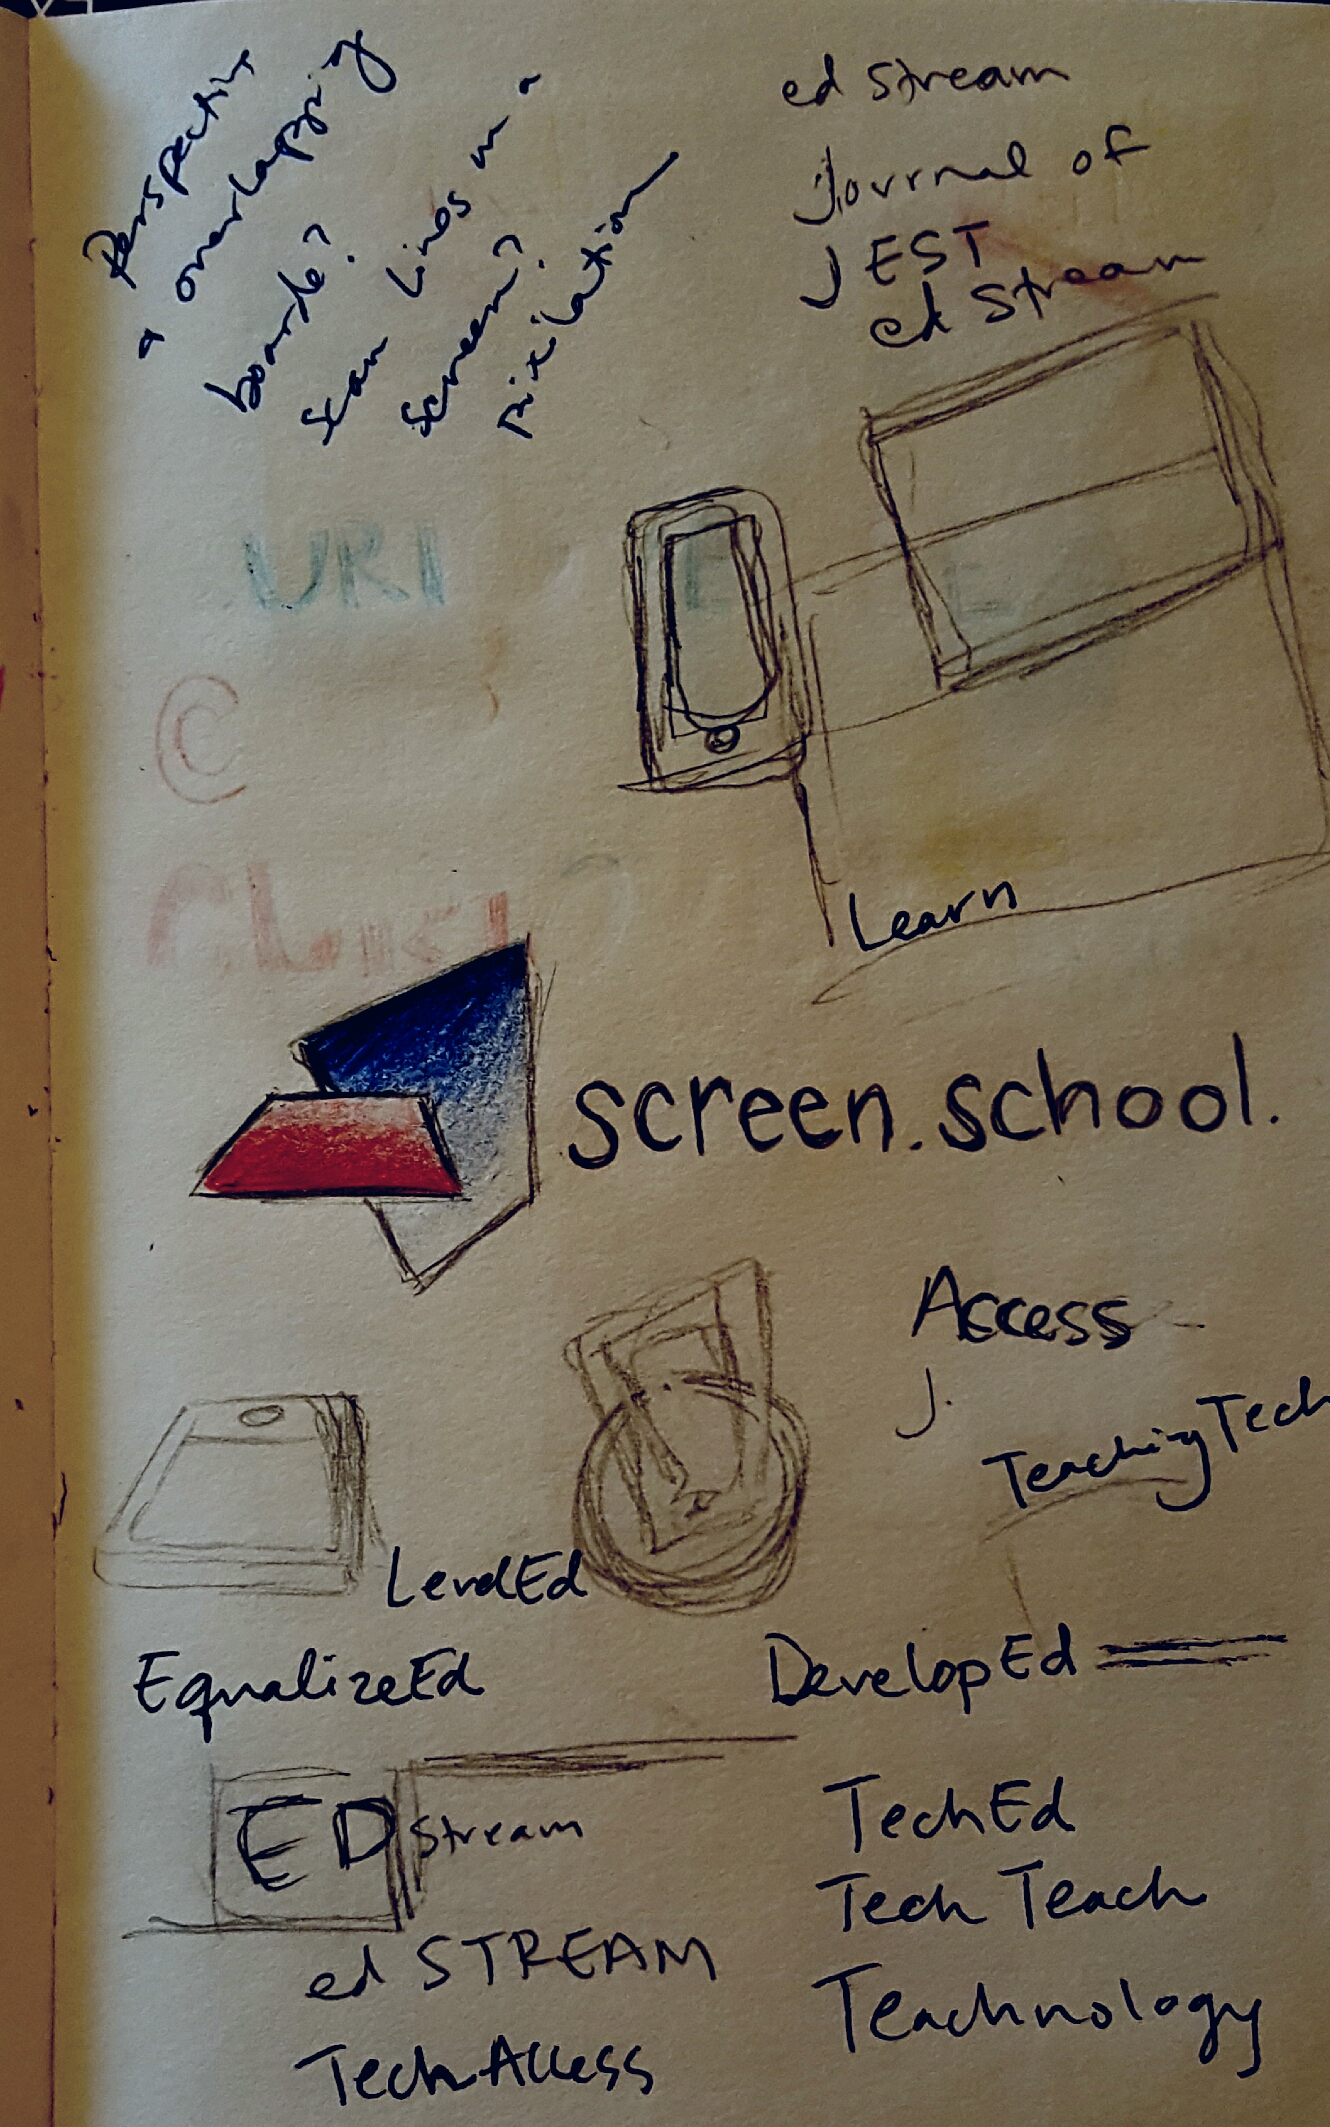 Perspective
& overlapping
boards?
scan lines in a
screen?
pixilation
ed stream
Journal of
JEST
ed Stream
URI
E
©
Learn
screen.school.
Access
J.
TeachingTech
LevelEd
EqualizeEd
DevelopEd
ED Stream
TechEd
Tech Teach
ed STREAM
Teachnology
TechAccess